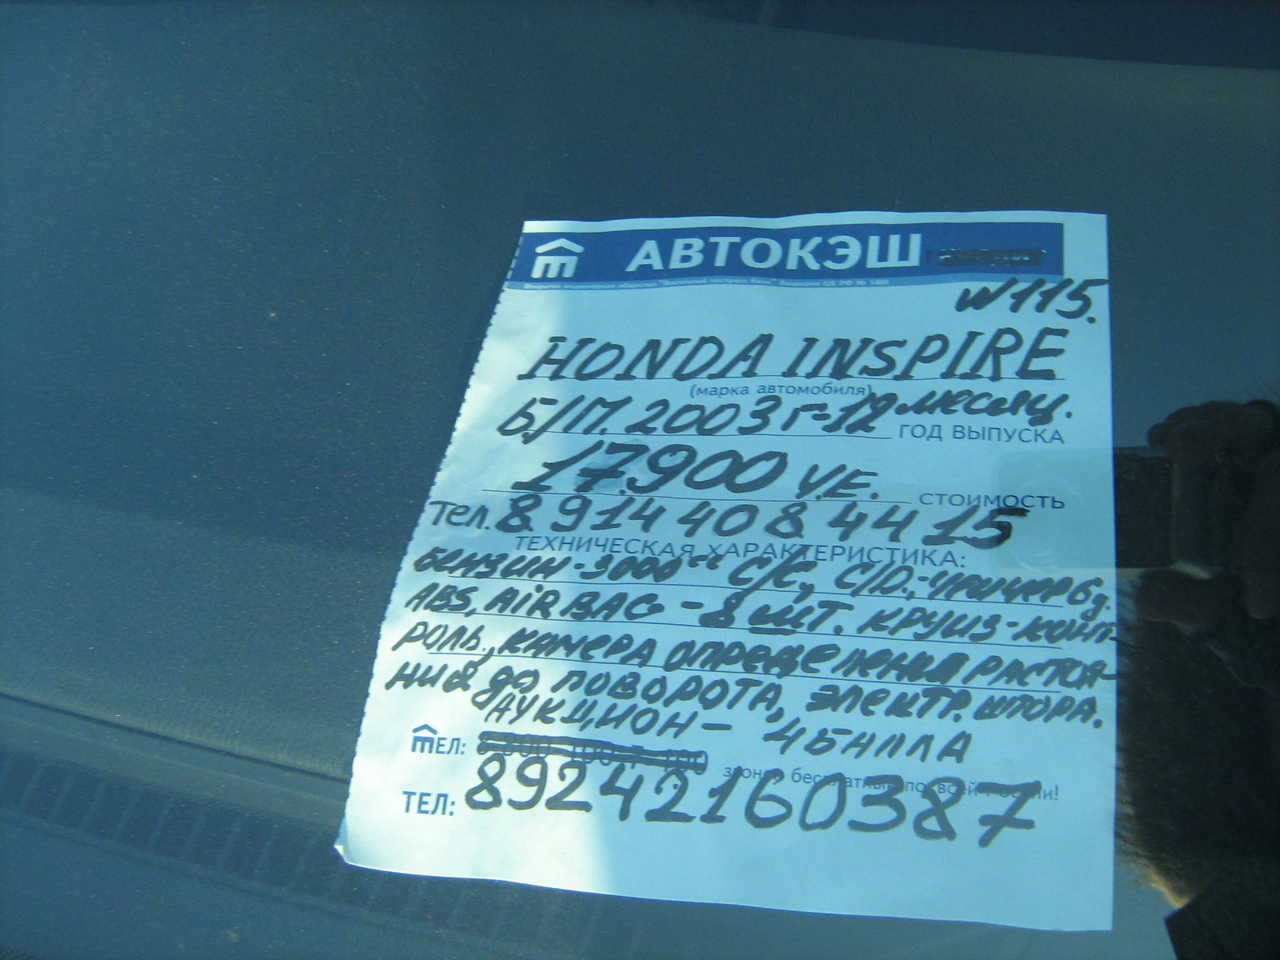 АВТОКЭШ
W115.
HONDA INSPIRE
(марка автомобиля)
Б/П. 2003 г-12 месяц.
ГОД ВЫПУСКА
17.900 У.Е.
СТОИМОСТЬ
Тел. 8 914 408 44 15
ТЕХНИЧЕСКАЯ ХАРАКТЕРИСТИКА:
БЕНЗИН-3000сс С/С, С/D,-ЧЕЙНЧЕР 6 д.
ABS, AIRBAG - 8 шт. КРУИЗ-КОНТ-
РОЛЬ, КАМЕРА ОПРЕДЕЛЕНИЯ РАСТОЯ-
НИЯ ДО ПОВОРОТА, ЭЛЕКТР. ШТОРА.
АУКЦИОН - 4 БАЛЛА
ТЕЛ:
звонок бесплатный по всей России!
ТЕЛ: 89242160387